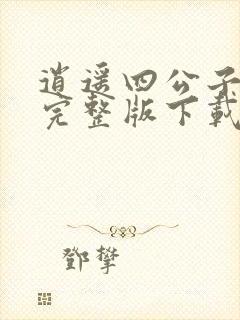 逍遥四公子
完整版下载
鄧攀